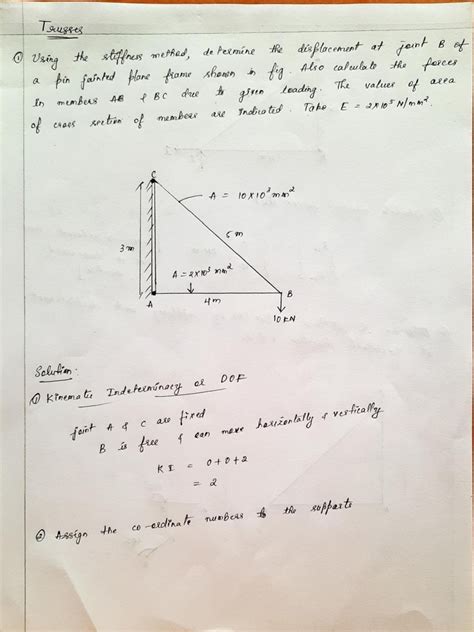 Trusses
① Using the stiffness method, determine the displacement at joint B of
a pin jointed plane frame shown in fig. Also calculate the forces
in members AB & BC due to given loading. The values of area
of cross section of members are indicated. Take E = 2×10⁵ N/mm².
C
A = 10×10³ mm²
3m
5m
A = 2×10³ mm²
A
4m
B
10 KN
Solution:
① Kinematic Indeterminacy or DOF
joint A & C are fixed
B is free & can move horizontally & vertically
KI = 0+0+2
= 2
② Assign the co-ordinate numbers to the supports